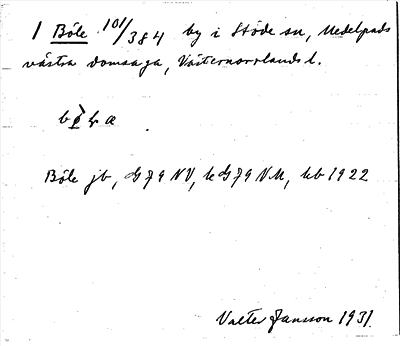 1 Böle 101/384 by i Stöde sn, Medelpads
västra domsaga, Västernorrlands l.
Böle jb, G79NV, kG79NV.M, kb 1922
Valter Jansson 1931.